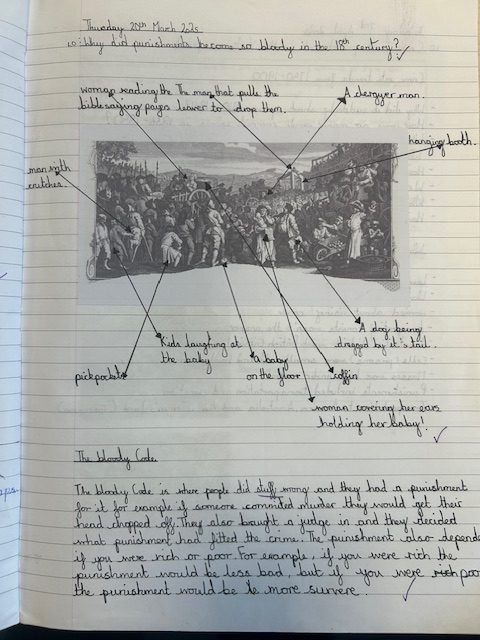 Thursday 20th March 2025
LO: Why did punishments become so bloody in the 18th century?
woman reading the
bible saying prayers
The man that pulls the
leaver to drop them.
A clergyer man.
hanging booth.
man with
crutches.
Kids laughing at
the baby
A dog being
dragged by it's tail.
pickpockets
a baby
on the floor
coffin
woman covering her ears
holding her baby!
The bloody Code.
The bloody Code is where people did stuff wrong and they had a punishment
for it for example if someone commited murder they would get their
head chopped off. They also baught a judge in and they decided
what punishment had fitted the crime. The punishment also depends
if you were rich or poor. For example, if you were rich the
punishment would be less bad, but if you were poor
the punishment would be more survere.